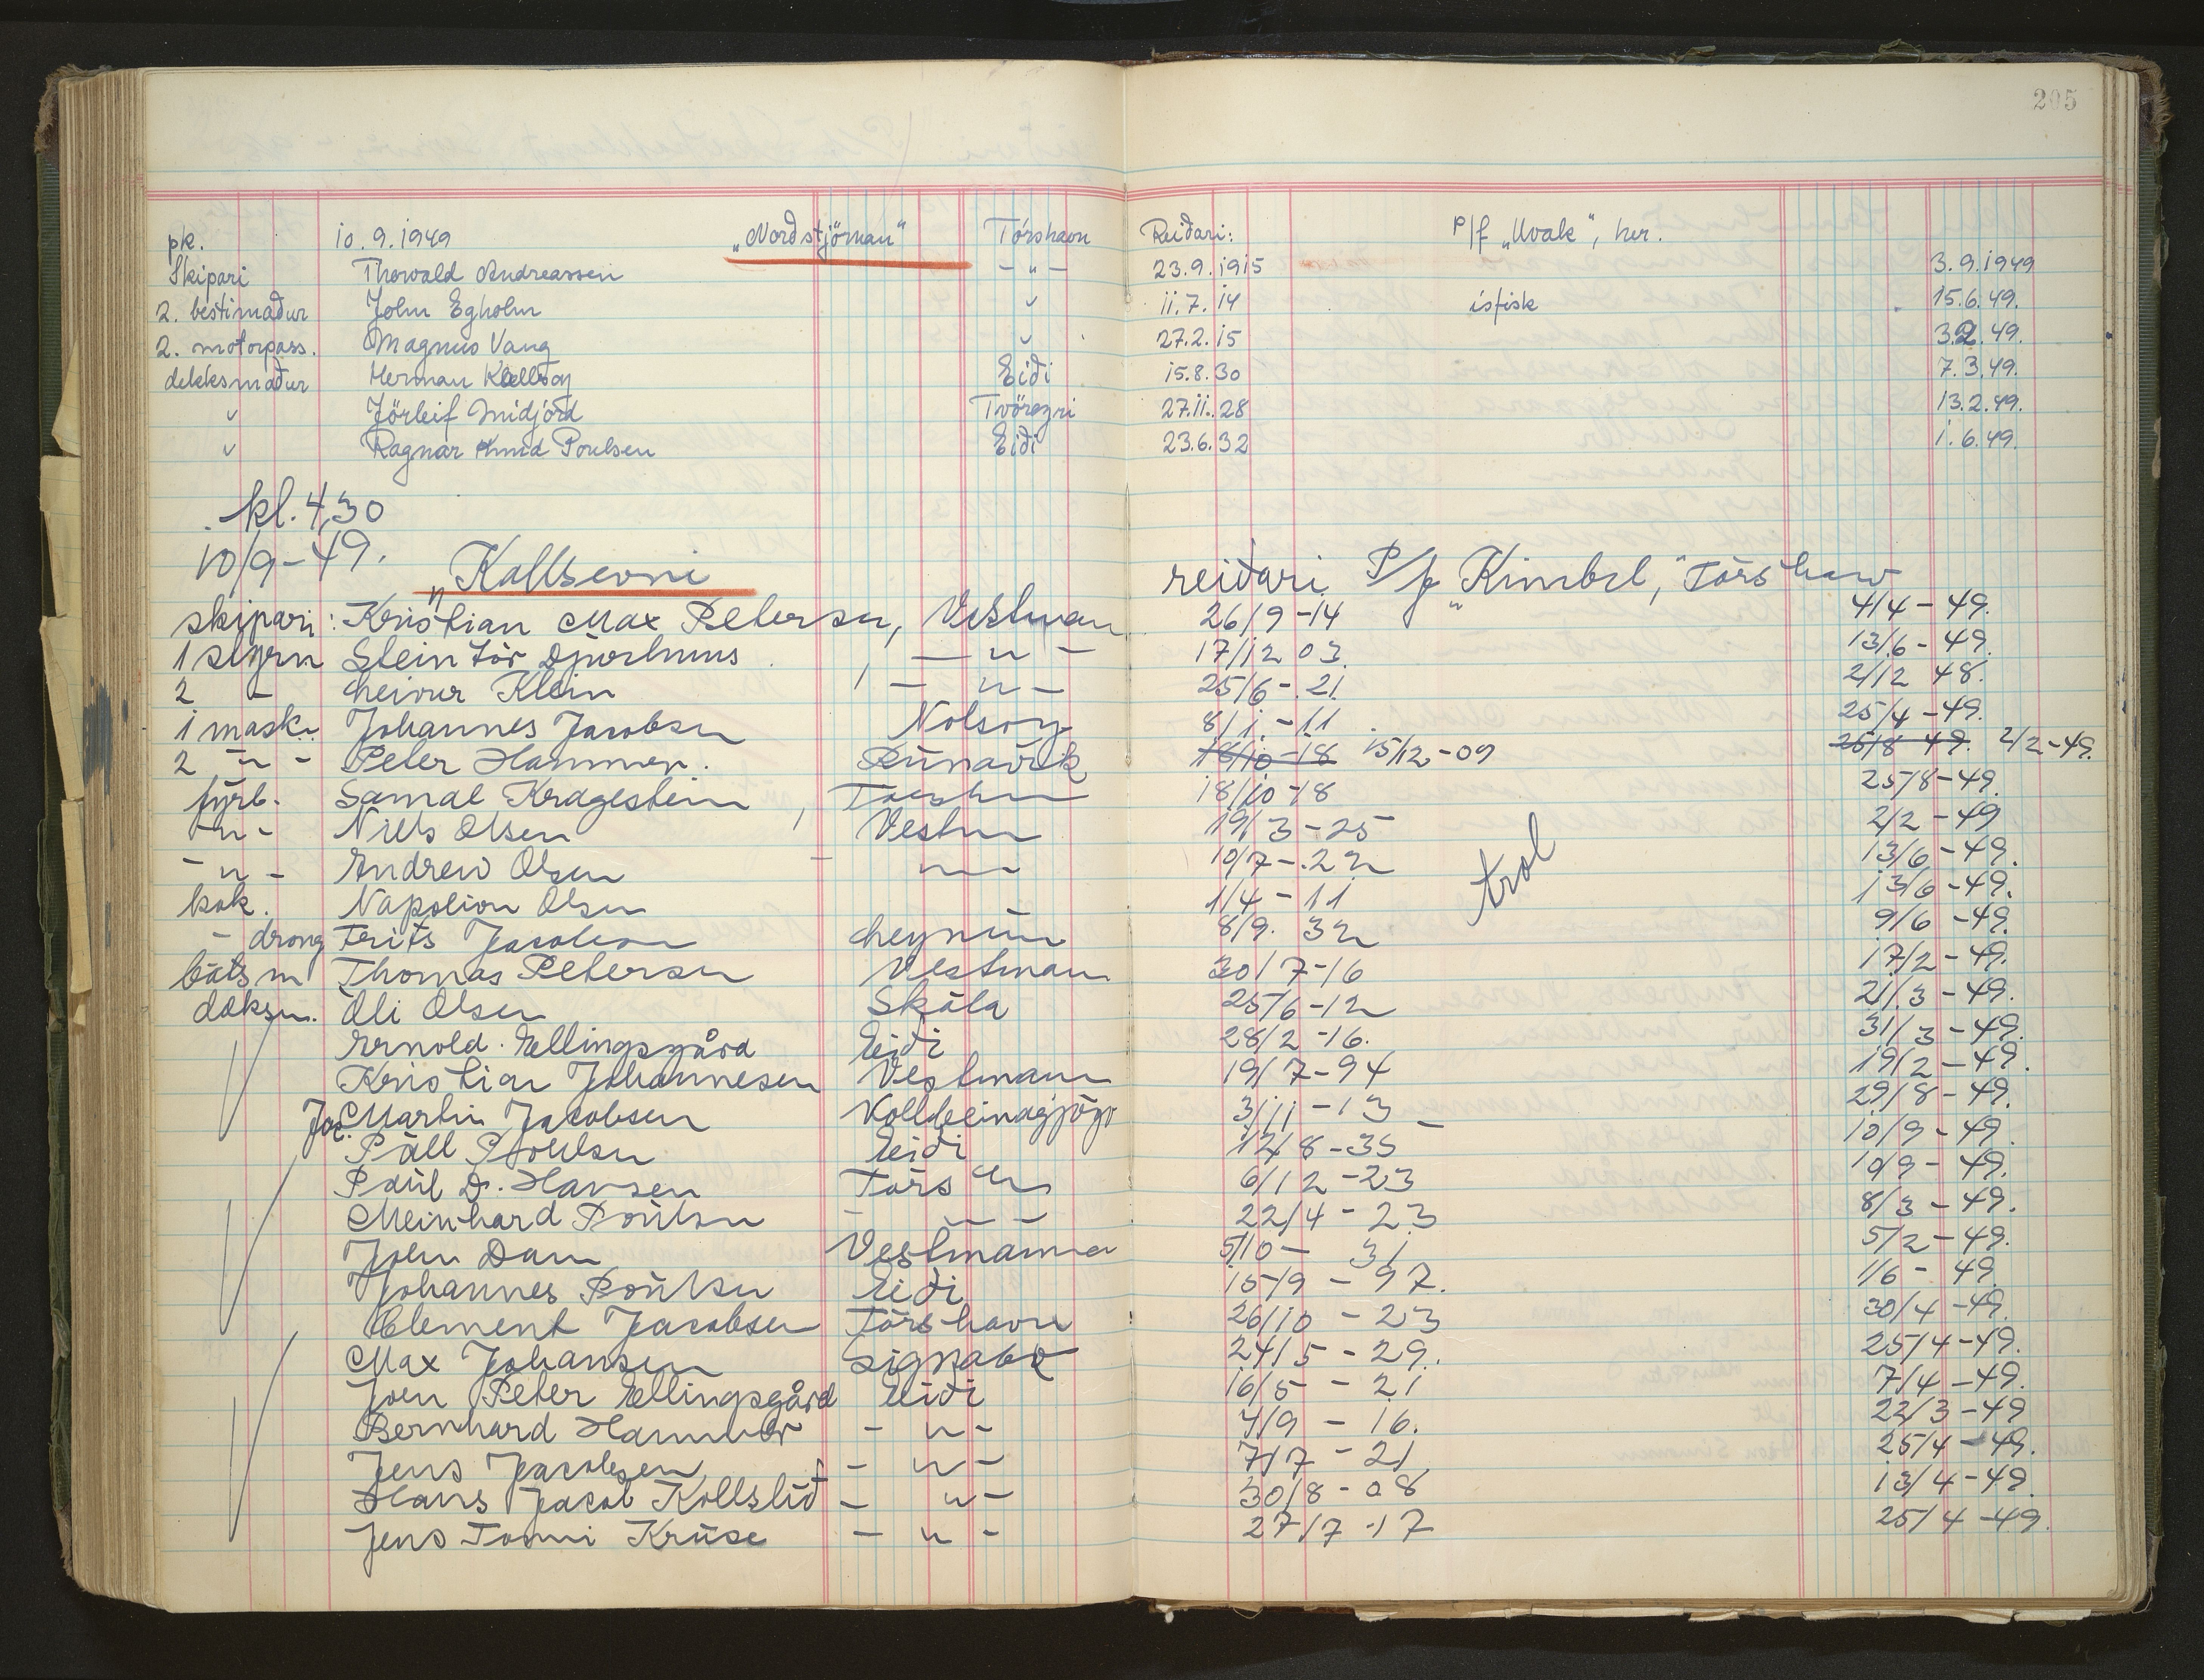 205
pk. 10.9.1949 „Nordstjörnan" Tórshavn Reiðari: P/f „Uvak", her.
Skipari Thorvald Andreassen - " - 23.9.1915 3.9.1949
2. bestimaður John Egholm " 11.7.14 ísfisk 15.6.49.
2. motorpass. Magnus Vang " 27.2.15 3.2.49.
dekksmaður Herman Kollsoy Eiði 15.8.30 7.3.49.
" Jörleif Midjord Tvöroyri 27.11.28 13.2.49.
" Ragnar Poulsen Eiði 23.6.32 1.6.49
kl. 4,30
10/9-49. „Kallsevni" reiðari P/f „Kimbil," Tórshavn
skipari: Kristian Max Petersen, Vestman 26/9-14 4/4-49.
1 stýrm Steintór Djurhuus - " - 17/12 03. 13/6-49.
2 - Heivur Klein - " - 25/6-21. 2/12 48.
1 mask. Johannes Jacobsen Nolsoy 8/1-11 25/4-49.
2 - " - Peter Hammer. Rúnavík 18/10-18 15/12-09 25/8 49. 2/2-49.
fýrb. Samal Kragestein, Torshn 18/10-18 25/8-49.
- " - Niels Olsen Vestm 19/3-25 2/2-49
- " - Andrew Olsen - " - 10/7-22 trol 13/6-49.
kok. Napolion Olsen 1/4-11 13/6-49.
- drong Frits Jacobsen 8/9. 32 9/6-49.
bátsm Thomas Petersen Vestman 30/7-16 17/2-49.
deksm. Óli Olsen Skála 25/6-12 21/3-49.
Arnold Ellingsgård Eiði 28/2-16. 31/3-49.
Kristian Johannesen Vestmann 19/7-94 19/2-49.
Jac. Martin Jacobsen Kolbeinagjógv 3/11-13 29/8-49.
Páll Poulsen Eiði 12/8-35 10/9-49.
Paúl D. Hansen Tórshn 6/12-23 10/9-49.
Meinhard Poúlsen - " - 22/4-23 8/3-49.
John Dam Vestmanna 5/10-31 5/2-49.
Johannes Poúlsen Eiði 15/9-97. 1/6-49.
Clement Jacobsen Tórshavn 26/10-23 30/4-49.
Max Johansen Signabø 24/5-29. 25/4-49.
Joen Peter Ellingsgård Eiði 16/5-21 7/4-49.
Bernhard Hammer - " - 4/9-16. 22/3-49
Jens Jacobsen - " - 7/7-21 25/4-49.
Hans Jacob Kollslið - " - 30/8-08 13/4-49.
Jens Tomi Krúse - " - 27/7-17 25/4-49.